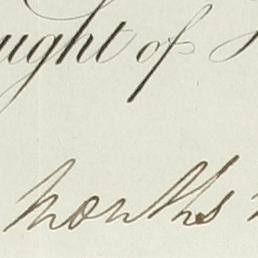 ught of
months